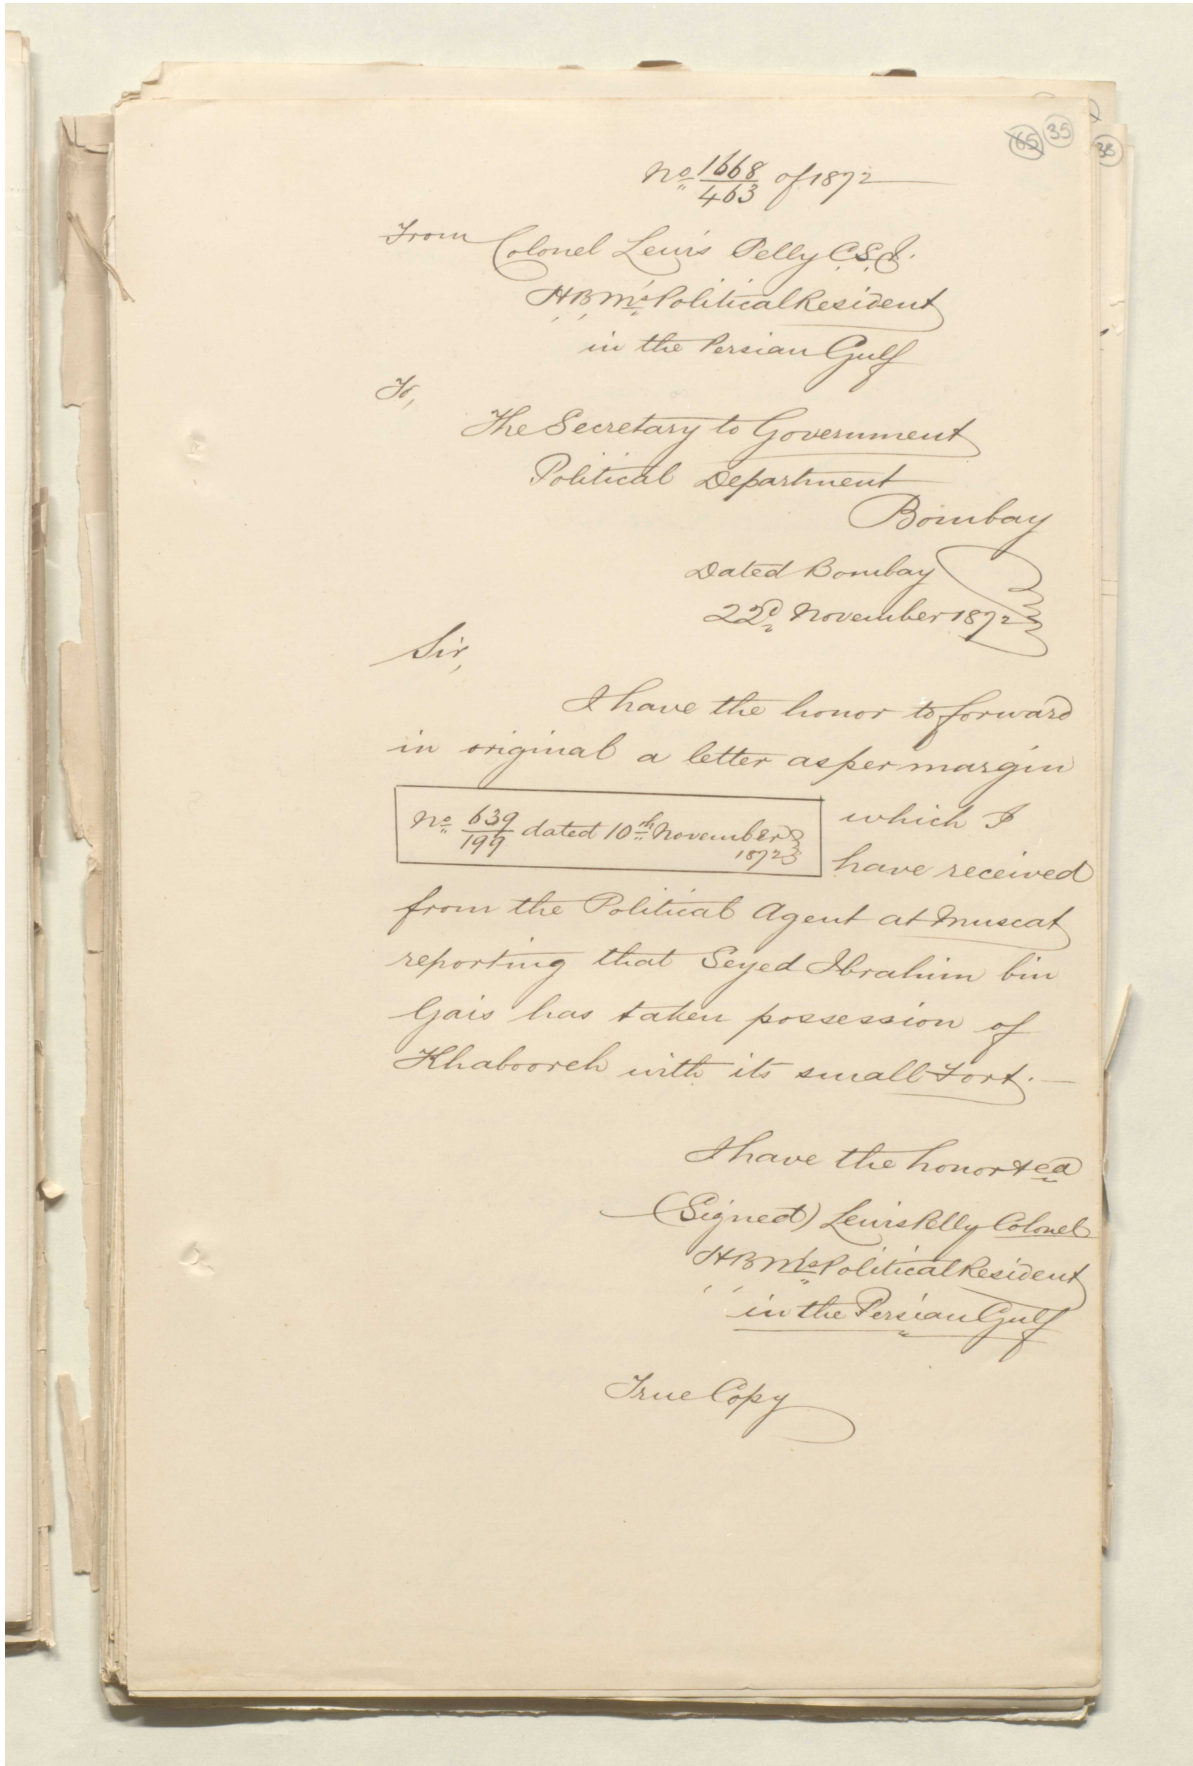 65 35
38
No 1668/463 of 1872
From Colonel Lewis Pelly C.S.I.
H B M's Political Resident
in the Persian Gulf
To,
The Secretary to Government
Political Department
Bombay
Dated Bombay
22d November 1872
Sir,
I have the honor to forward
in original a letter as per margin
No 639/199 dated 10th November
1872
which I
have received
from the Political Agent at Muscat
reporting that Seyed Ibrahim bin
Gais has taken possession of
Khabooreh with its small Fort. —
I have the honor &ca
(Signed) Lewis Pelly Colonel
H B M's Political Resident
in the Persian Gulf
True Copy